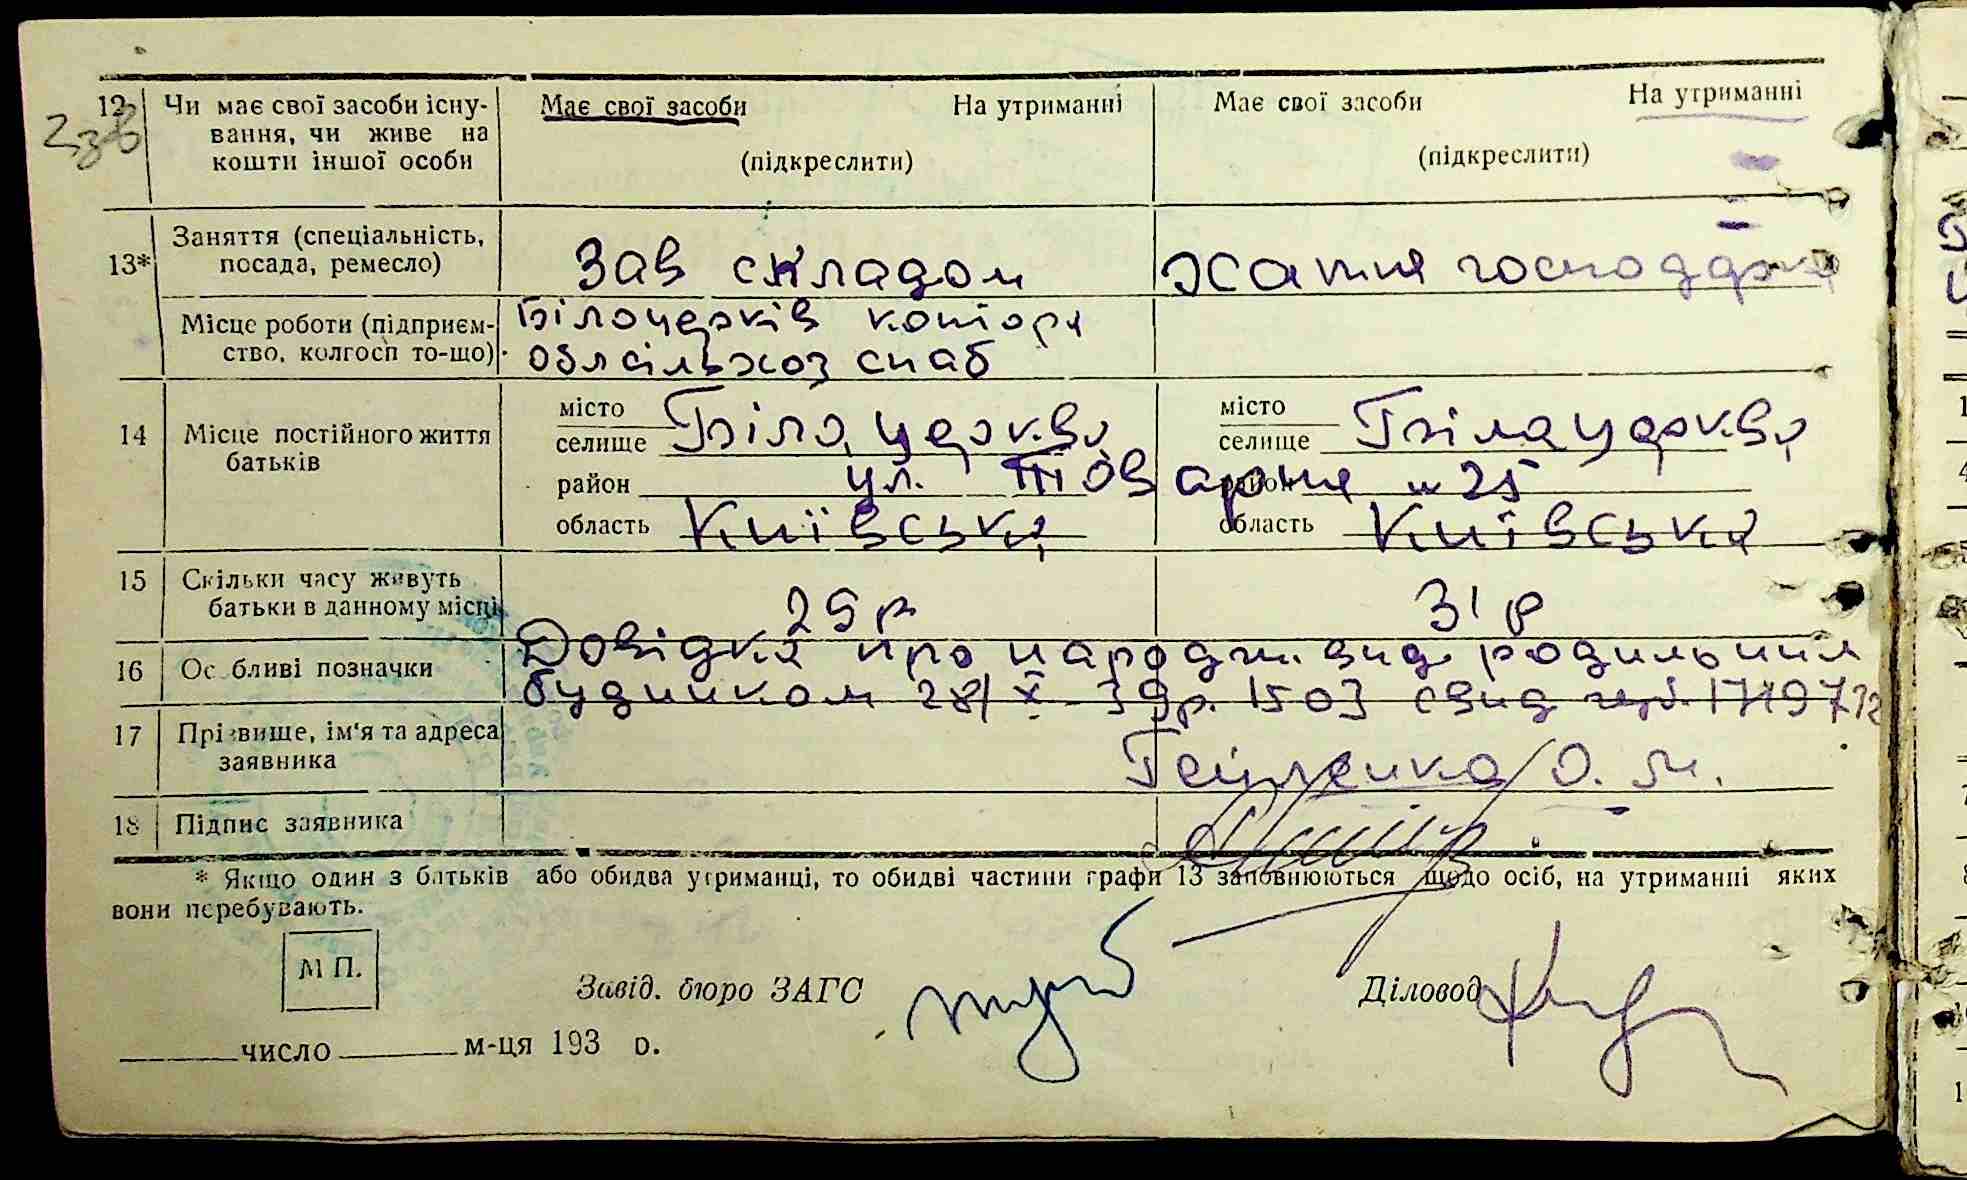 12 Чи має свої засоби існу- Має свої засоби На утриманні Має свої засоби На утриманні
вання, чи живе на
кошти іншої особи (підкреслити) (підкреслити)
13* Заняття (спеціальність, посада, ремесло) Зав складом хатня господарка
Місце роботи (підприєм- Білоцерків контора
ство, колгосп то-що) облсільхоз снаб
14 Місце постійного життя батьків
місто місто
селище Біла церква селище Біла церква
район ул. Товарня 25
область Київська область Київська
15 Скільки часу живуть
батьки в данному місці 29 р 31 р
16 Особливі позначки Довідка про народж. вид. родильним
будинком 28/X 39р. 1503 свид
17 Прізвище, ім'я та адреса
заявника О. М.
18 Підпис заявника
* Якщо один з батьків або обидва утриманці, то обидві частини графи 13 заповнюються щодо осіб, на утриманні яких
вони перебувають.
М П.
Завід. бюро ЗАГС Діловод
число м-ця 193 р.